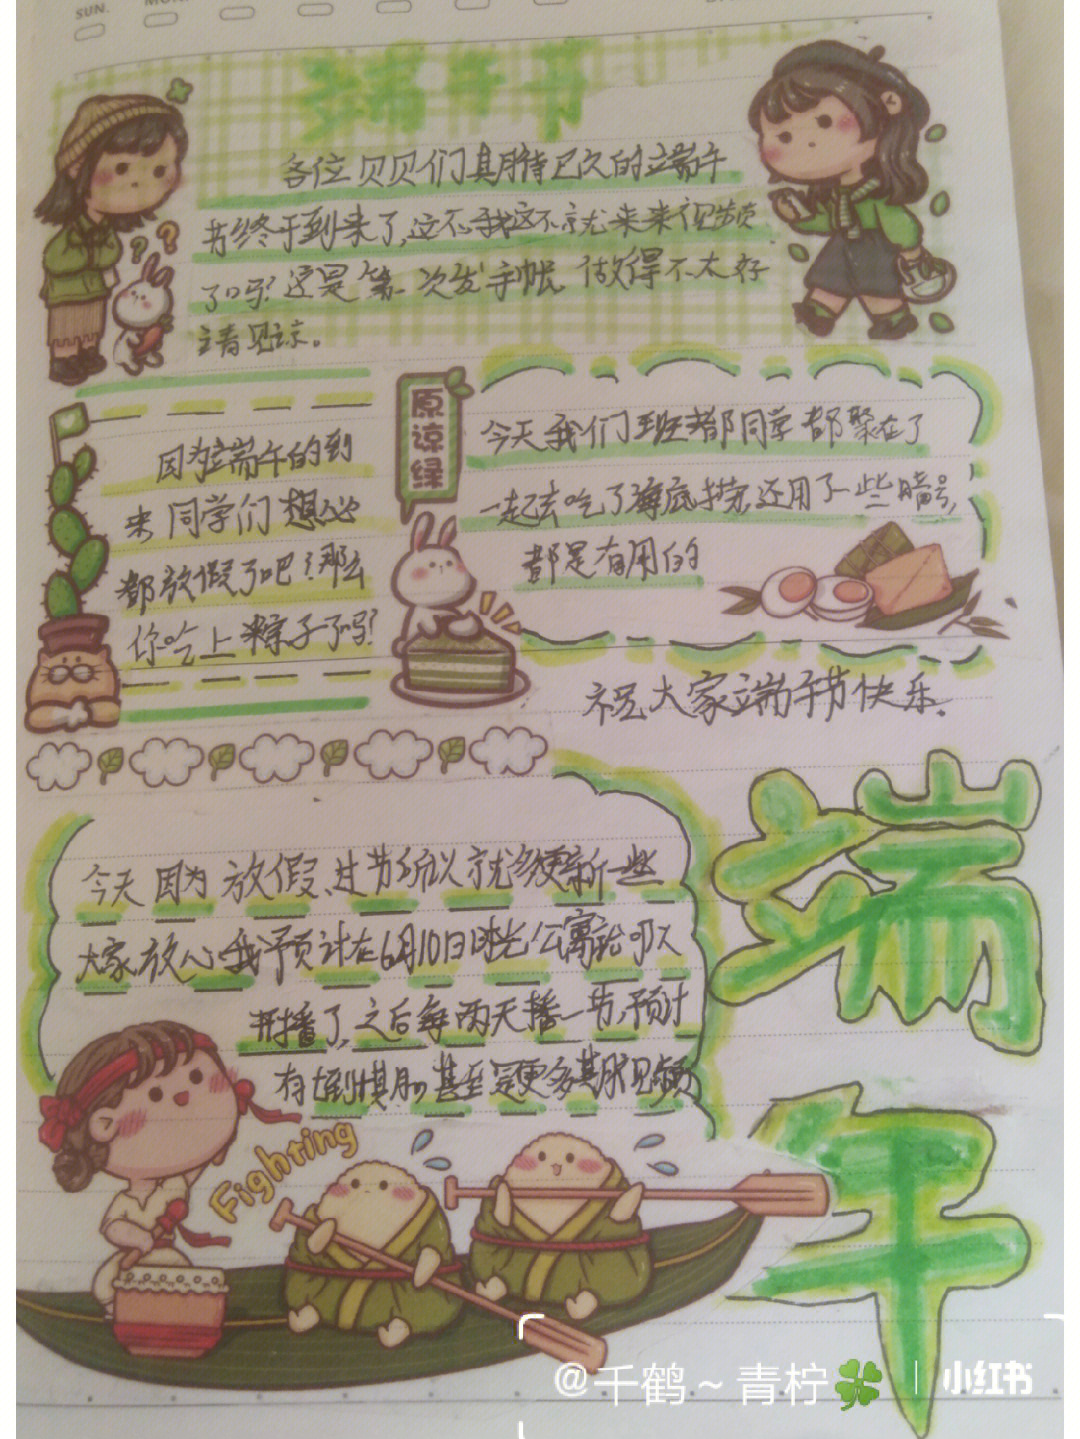 SUN.
端午节
各位贝贝们期待已久的端午
节终于到来了,这不我这不就来来视频
了吗?这是第一次发手帐 做得不太好
请见谅。
因为端午的到
来 同学们想必
都放假了吧!那么
你吃上粽子了吗?
原谅绿
今天我们班都同学都聚在了
一起去吃了海底捞,还用了一些暗号,
都是有用的
祝大家端午节快乐.
今天因为放假、过节所以就多更新一些
大家放心我预计在6月10日时光公寓就可以
开播了,之后每两天播一节,预计
有 甚至 更多 视频
Fighting
端午
@千鹤~青柠🍀 | 小红书